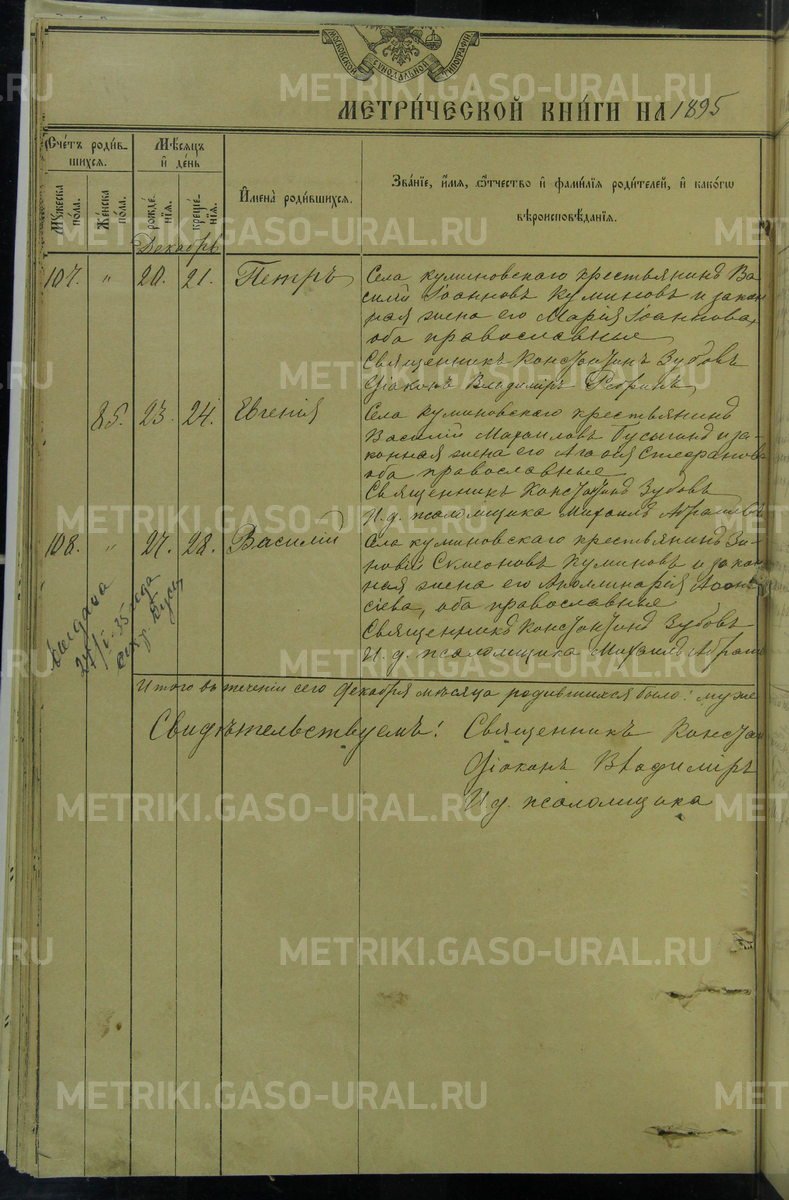 МОСКОВСКОЙ СѴНОДАЛЬНОЙ ТИПОГРАФІИ
МЕТРИ́ЧЕСКОЙ КНИ́ГИ НА 1895
Сче́тъ роди́в-
шихся.
Мѣ́сяцъ
и҆ де́нь
Му́жеска
по́ла.
Же́нска
по́ла.
рожде́-
нїѧ.
креще́-
нїѧ.
И҆мена̀ роди́вшихся.
Зва́нїе, и҆́мѧ, ѻ҆́тчество и҆ фами́лїѧ роди́телей, и҆ како́гѡ
вѣроисповѣ́данїѧ.
Декабрь
107. " 20. 21. Петръ
Села Куминовскаго крестьянинъ Ва-
силій Іоанновъ Куминовъ и закон
ная жена его Марія Іоаннова,
оба православные
Священникъ Константинъ Зубовъ
Діаконъ Владиміръ
85. 23. 24. Евгенія
Села Куминовскаго крестьянинъ
Василій Михаиловъ Бусыгинъ и за-
конная жена его Агафія Стефанова
оба православные
Священникъ Константинъ Зубовъ
И. д. псаломщика Михаилъ
108. " 27. 28. Василій
Села Куминовскаго крестьянинъ Зи-
новій Симеоновъ Куминовъ и закон
ная жена его Аполлинарія Афана
сіева, оба православные
Священникъ Константинъ Зубовъ
И. д. псаломщика Михаилъ
выдана
27/I-35 года
Итого въ теченіи сего Декабря мѣсяца родившихся было: муже
Свидѣтельствуемъ: Священникъ Констан
Діаконъ Владиміръ
И д. псаломщика
METRIKI.GASO-URAL.RU